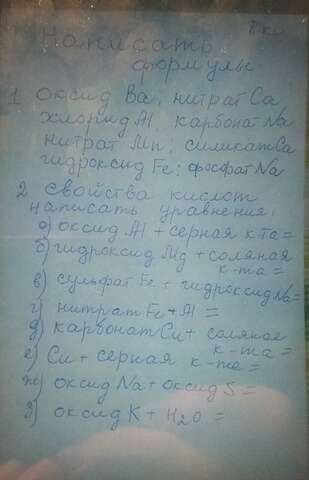 8 кл
Написать
формулы
1 оксид Ba, нитрат Ca
хлорид Al, карбонат Na
нитрат Mn; силикат Ca
гидроксид Fe; фосфат Na
2 свойства кислот
написать уравнения:
а) оксид Al + серная к-та =
б) гидроксид Mg + соляная
к-та =
в) сульфат Fe + гидроксид Na =
г) нитрат Fe + Al =
д) карбонат Cu + соляная
к-та =
е) Cu + серная к-та =
ж) оксид Na + оксид S =
з) оксид K + H2O =